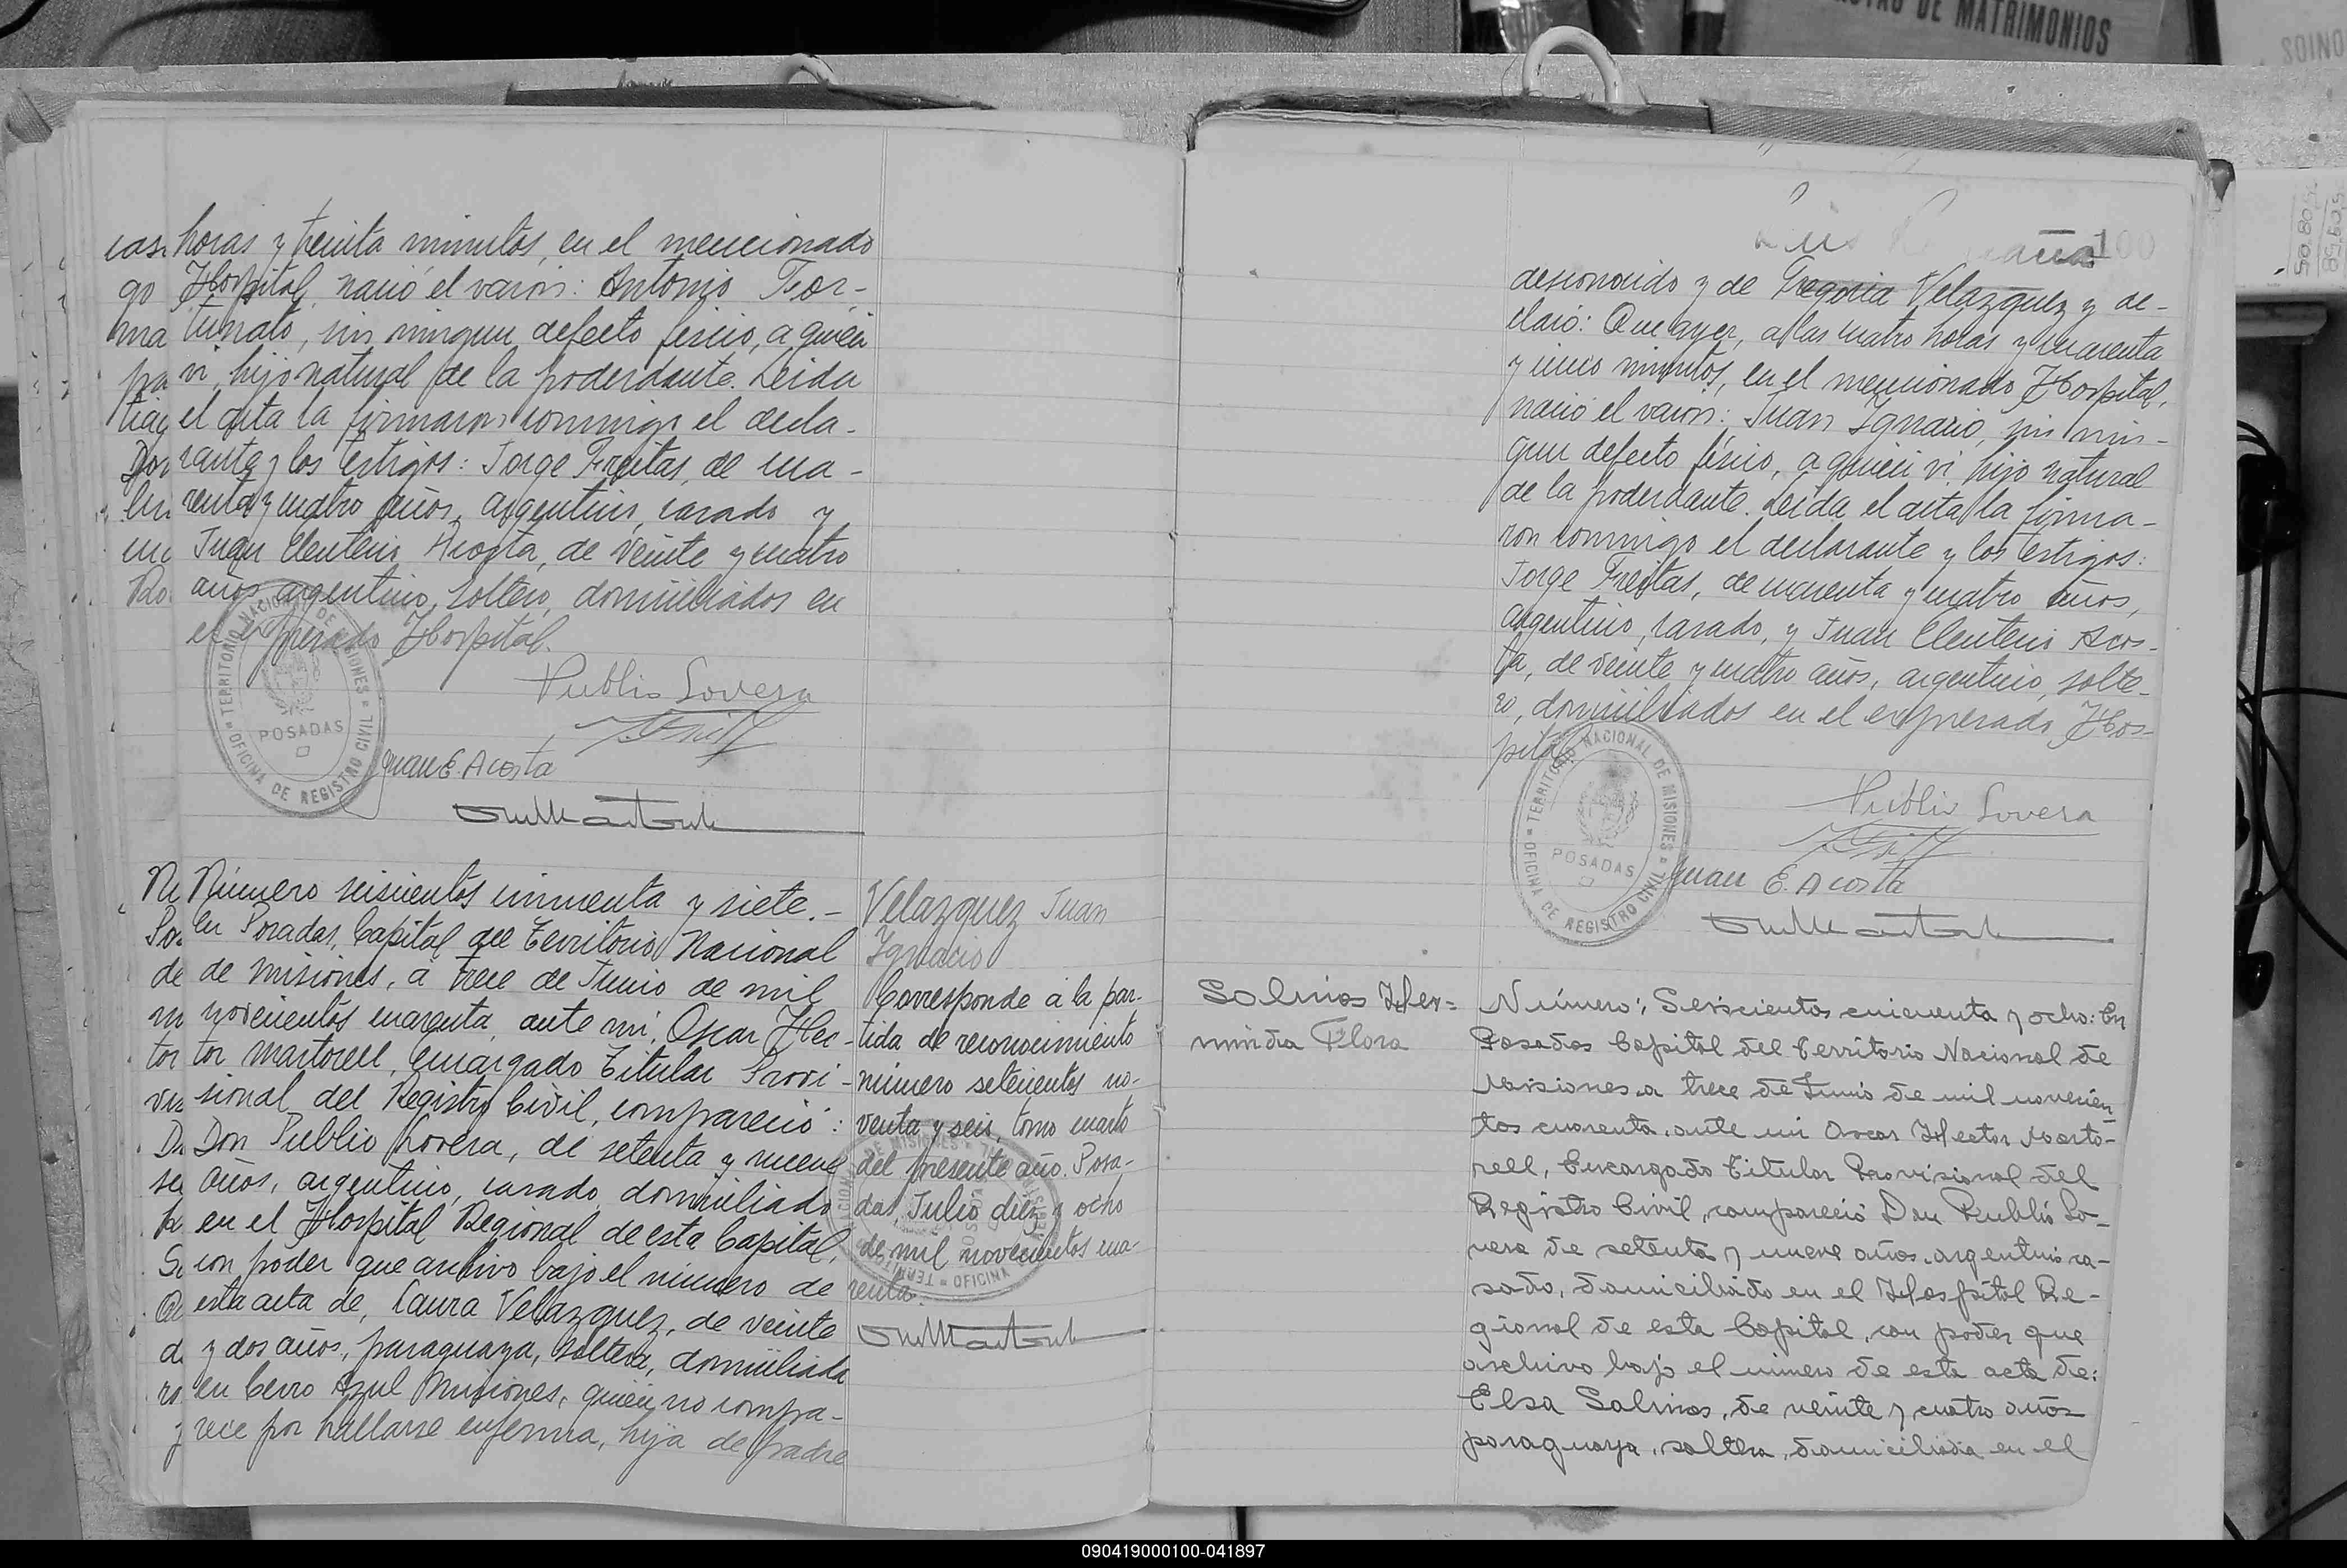 horas y treinta minutos, en el mencionado
Hospital, nació el varón: Antonio For-
tunato, sin ningun defecto físico, a quien
vi, hijo natural de la poderdante. Leída
el acta la firmaron conmigo el decla-
rante y los testigos: Jorge Freitas, de cua-
renta y cuatro años, argentino, casado y
Juan Eleuterio Acosta, de veinte y cuatro
años, argentino, soltero, domiciliados en
el expresado Hospital.
Publio Lovera
Juan E. Acosta
TERRITORIO NACIONAL DE MISIONES
POSADAS
OFICINA DE REGISTRO CIVIL
Número seiscientos cincuenta y siete.-
En Posadas, Capital del Territorio Nacional
de Misiones, a trece de Junio de mil
novecientos cuarenta, ante mí, Oscar Hec-
tor Martorell, Encargado Titular Provi-
sional del Registro Civil, compareció:
Don Publio Lovera, de setenta y nueve
años, argentino, casado, domiciliado
en el Hospital Regional de esta Capital,
con poder que archivo bajo el número de
esta acta de, Laura Velazquez, de veinte
y dos años, paraguaya, soltera, domiciliada
en Cerro Azul Misiones, quién no compa-
rece por hallarse enferma, hija de padre
Velazquez Juan
Ignacio
Corresponde a la par-
tida de reconocimiento
número setecientos no-
venta y seis, tomo cuarto
del presente año. Posa-
das, Julio diez y ocho
de mil novecientos cua-
renta.
100
desconocido y de Gregoria Velazquez y de-
claró: Que ayer, a las cuatro horas y cuarenta
y cinco minutos, en el mencionado Hospital,
nació el varón: Juan Ignacio, sin nin-
gun defecto físico, a quién vi, hijo natural
de la poderdante. Leída el acta la firma-
ron conmigo el declarante y los testigos:
Jorge Freitas, de cuarenta y cuatro años,
argentino, casado, y Juan Eleuterio Acos-
ta, de veinte y cuatro años, argentino, solte-
ro, domiciliados en el expresado Hos-
pital.
TERRITORIO NACIONAL DE MISIONES
POSADAS
OFICINA DE REGISTRO CIVIL
Publio Lovera
Juan E. Acosta
Salinas Her=
minda Flora
Número: Seiscientos cincuenta y ocho: En
Posadas Capital del Territorio Nacional de
Misiones, a trece de Junio de mil novecien
tos cuarenta, ante mi Oscar Hector Marto-
rell, Encargado Titular Provisional del
Registro Civil, compareció Don Publio Lo-
vera de setenta y nueve años, argentino ca-
sado, domiciliado en el Hospital Re-
gional de esta Capital, con poder que
archivo bajo el número de esta acta de:
Elsa Salinas, de veinte y cuatro años
paraguaya, soltera, domiciliada en el
DE MATRIMONIOS
090419000100-041897